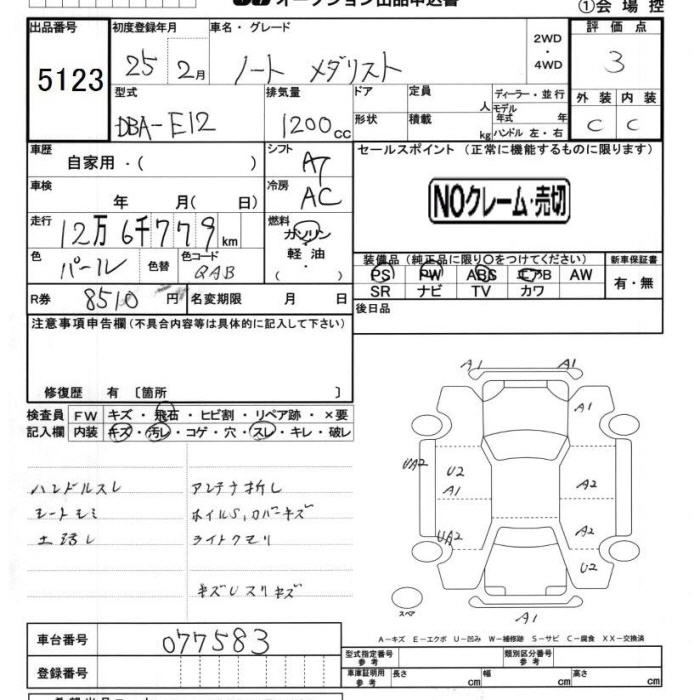 オークション出品申込書
①会場控
出品番号
5123
初度登録年月
25 2月
車名・グレード
ノート メダリスト
2WD
・
4WD
評価点
3
型式
DBA-E12
排気量
1200cc
ドア
形状
定員
人
積載
kg
ディーラー・並行
モデル
年式 年
ハンドル 左・右
外装 内装
C C
車歴
自家用・( )
シフト
AT
セールスポイント (正常に機能するものに限ります)
車検
年 月( 日)
冷房
AC
NOクレーム・売切
走行
12万6千779km
燃料
ガソリン
・
軽油
・
色
パール
色替
色コード
QAB
装備品(純正品に限り○をつけてください)
新車保証書
PS PW ABS エアB AW
SR ナビ TV カワ
有・無
R券 8510円
名変期限 月 日
後日品
注意事項申告欄(不具合内容等は具体的に記入して下さい)
修復歴 有 〔箇所 〕
検査員
記入欄
FW キズ・飛石・ヒビ割・リペア跡・×要
内装 キズ・汚レ・コゲ・穴・スレ・キレ・破レ
ハンドルスレ
シートシミ
土汚レ
アンテナ折レ
ホイルS,カバーキズ
ライトクモリ
キズUスリキズ
A1 A1
A1
UA2 U2 A1 A2
UA2 A2
U2
A1
スペア
A-キズ E-エクボ U-凹み W-補修跡 S-サビ C-腐食 XX-交換済
車台番号
077583
登録番号
型式指定番号
参考
類別区分番号
参考
車庫証明用
参考
長さ cm 幅 cm 高さ cm